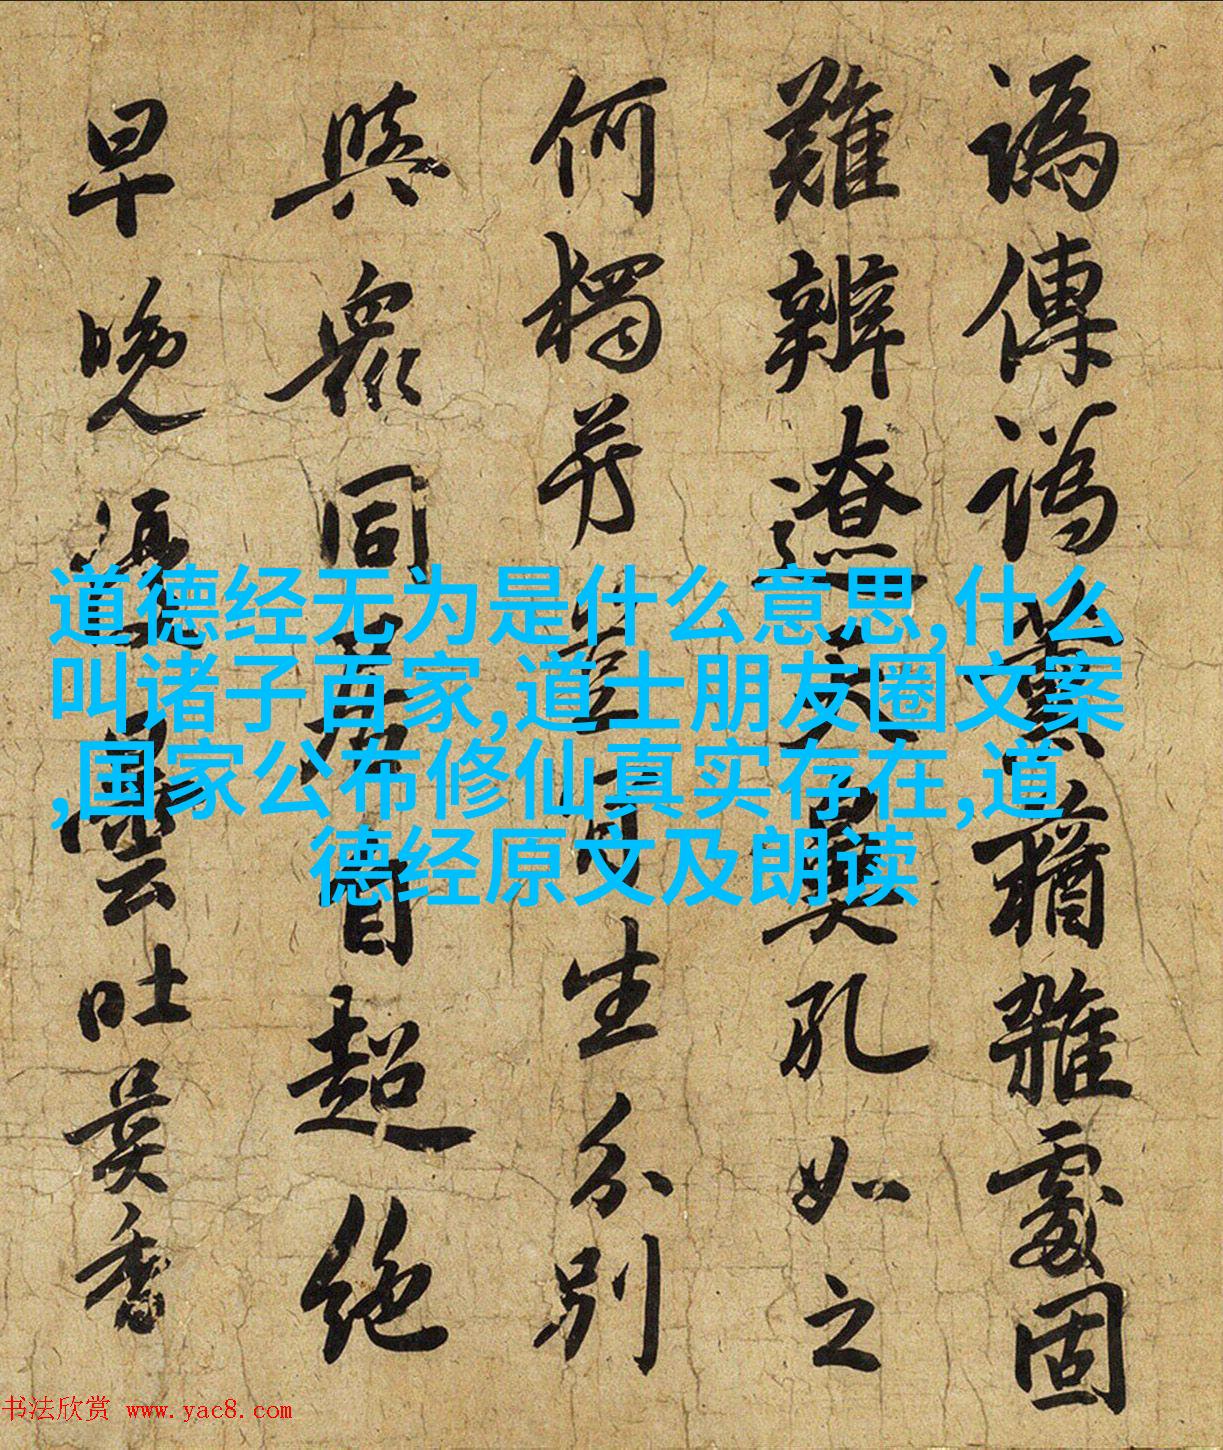 譌傳譌薰蕕雜處固
難辨遼天鼻孔如之
何獨豈可生分別
與衆同超絶
早晚優曇吐異香
道德经无为是什么意思,什么
叫诸子百家,道士朋友圈文案
,国家公布修仙真实存在,道
德经原文及朗读
书法欣赏 www.yac8.com